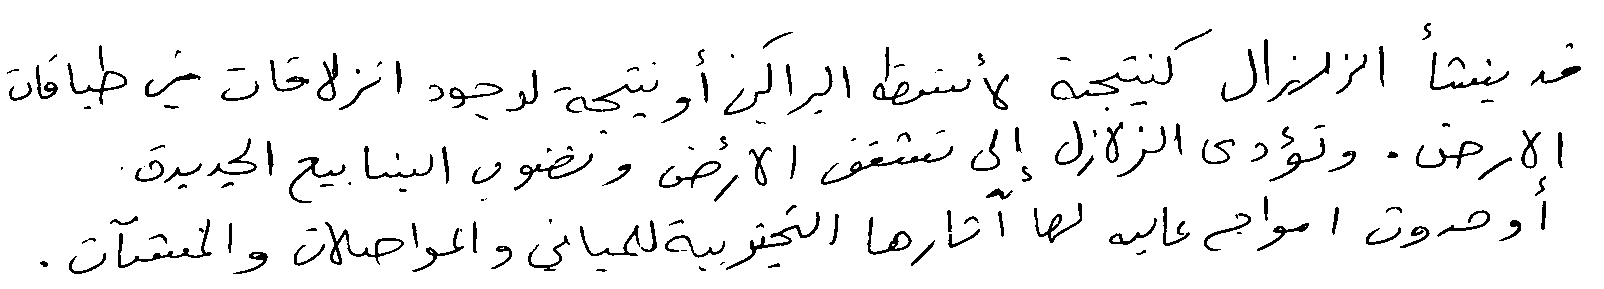 قد ينشأ الزلزال كنتيجة لأنشطة البراكين أو نتيجة لوجود انزلاقات في طبقات
الارض. وتؤدى الزلازل إلى تشقق الأرض ونضوب الينابيع الجديدة.
أو حدوث امواج عاليه لها آثارها التخريبية للمباني والمواصلات والمنشآت.